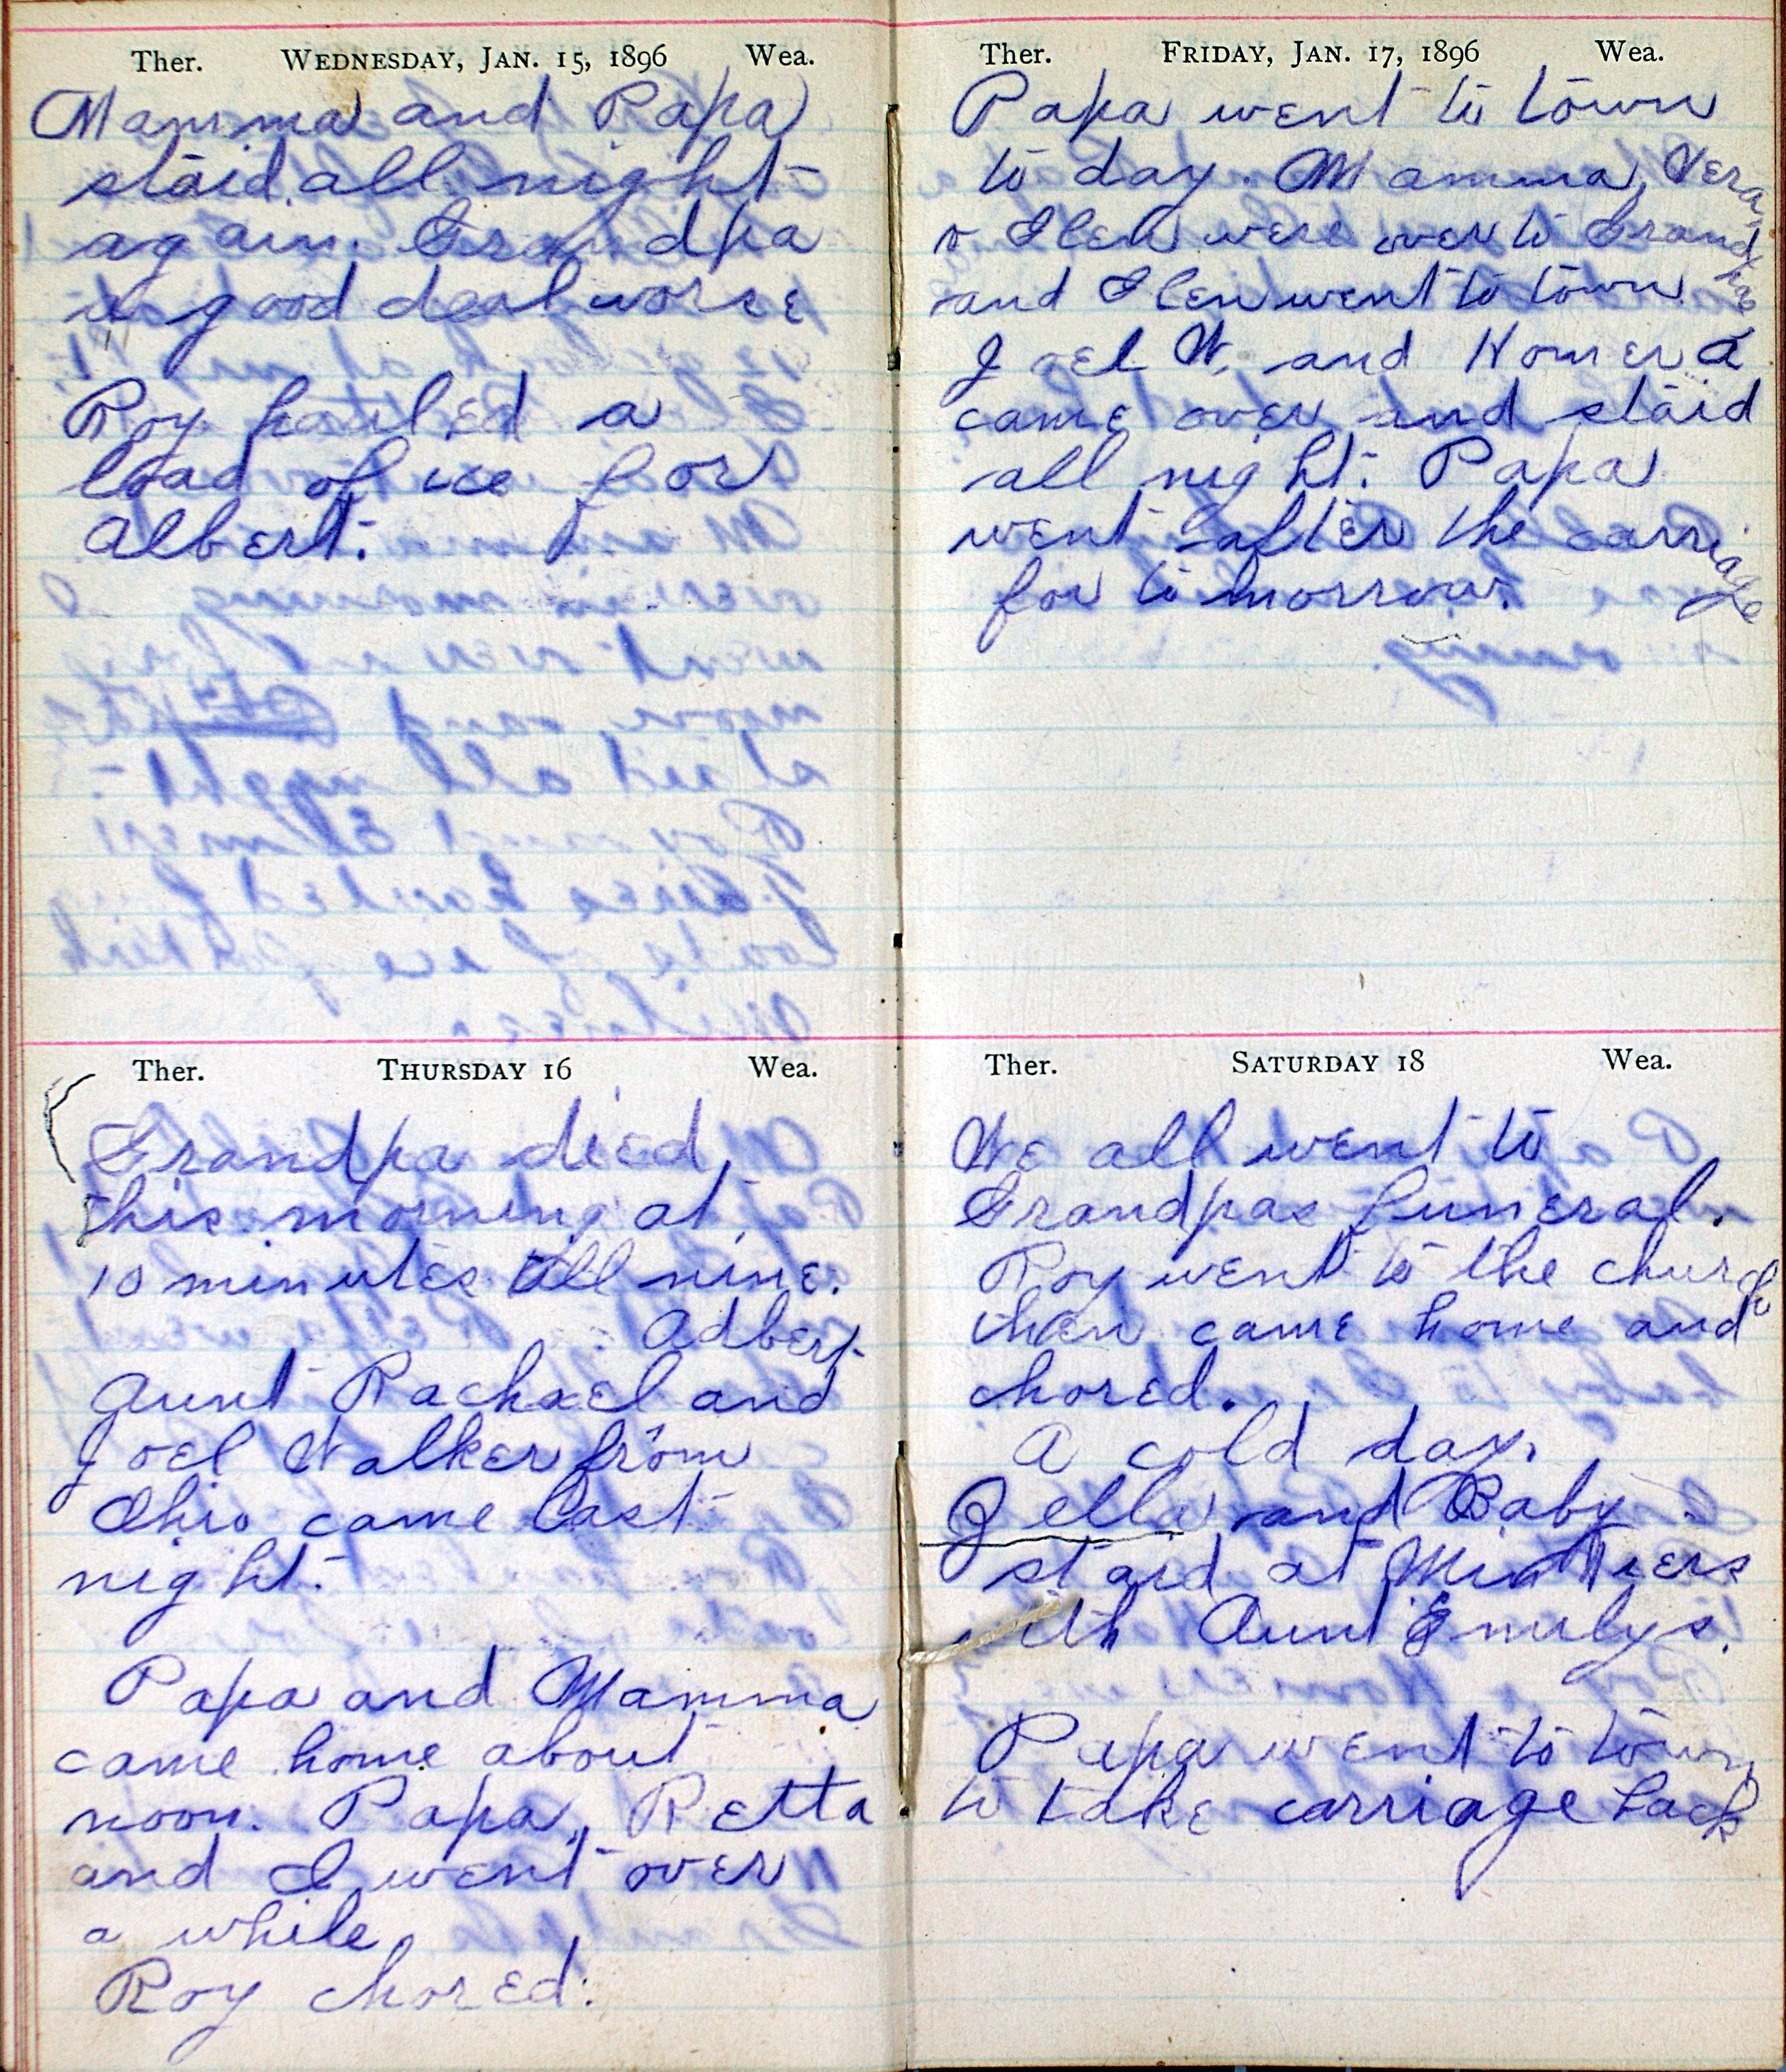 Ther. WEDNESDAY, JAN. 15, 1896 Wea.
Mamma and Papa
staid all night
again. Grandpa
a good deal worse
Roy hauled a
load of ice for
Albert.
Ther. THURSDAY 16 Wea.
Grandpa died
this morning at
10 minutes till nine.
Adbert
Aunt Rachael and
Joel Walker from
Ohio came last
night.
Papa and Mamma
came home about
noon. Papa, Retta
and I went over
a while.
Roy chored.
Ther. FRIDAY, JAN. 17, 1896 Wea.
Papa went to town
to day. Mamma, Vera
& Glen were over to Grandpas
and Glen went to town
Joel W. and Homer a
came over and staid
all night. Papa
went after the carriage
for to morrow.
Ther. SATURDAY 18 Wea.
We all went to
Grandpas funeral.
Roy went to the church
then came home and
chored.
A cold day.
Zella and Baby
staid at
with Aunt Emilys.
Papa went to town
to take carriage back